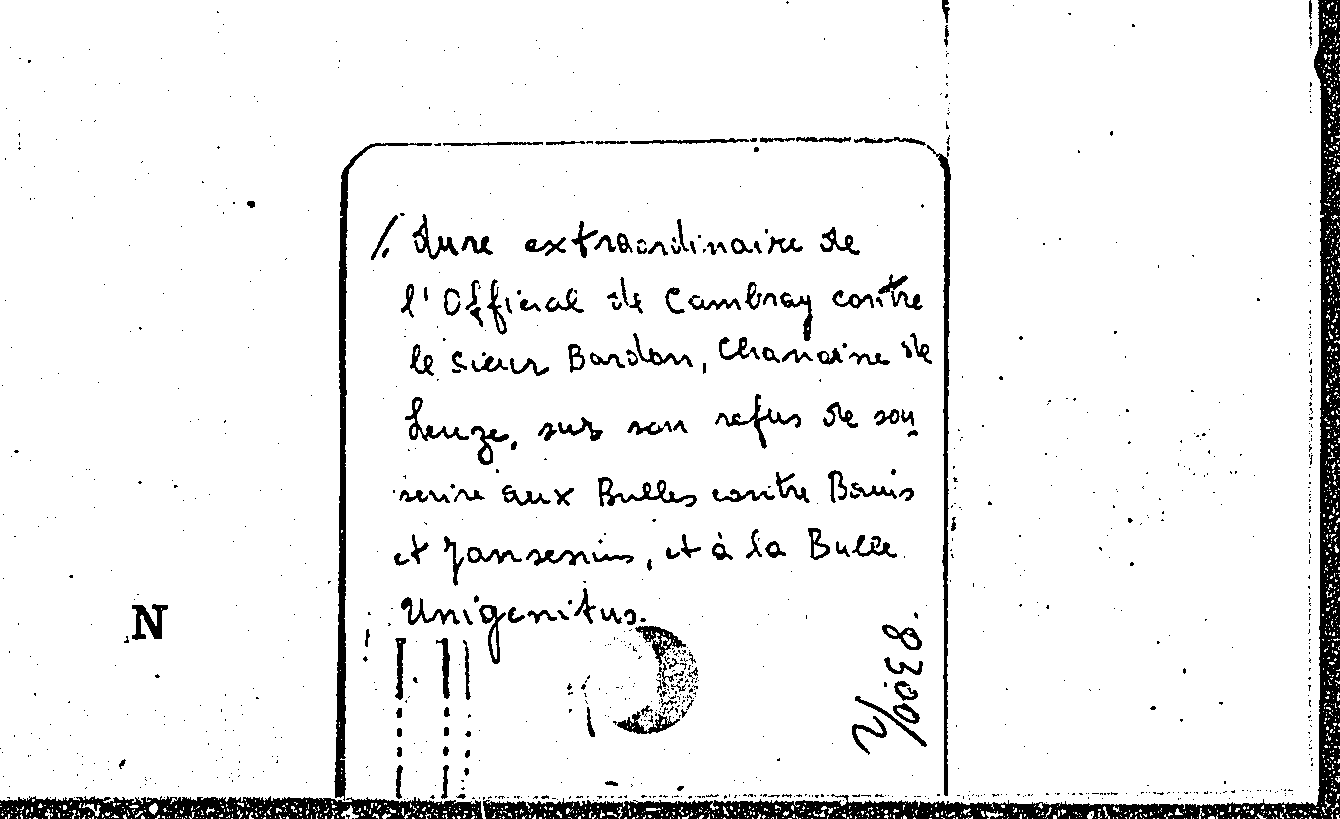 /. dure extraordinaire de
l'Official de Cambray contre
le sieur Bardon, Chanoine de
Leuze, sur son refus de sou
scrire aux Bulles contre Baius
et Jansenius, et à la Bulle
Unigenitus.
N
8300/2